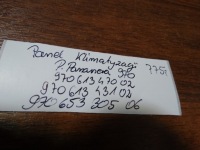 Panel Klimatyzacji 775i
P. Paranova 970
970 613 47 02
970 613 431 02
970 653 305 06